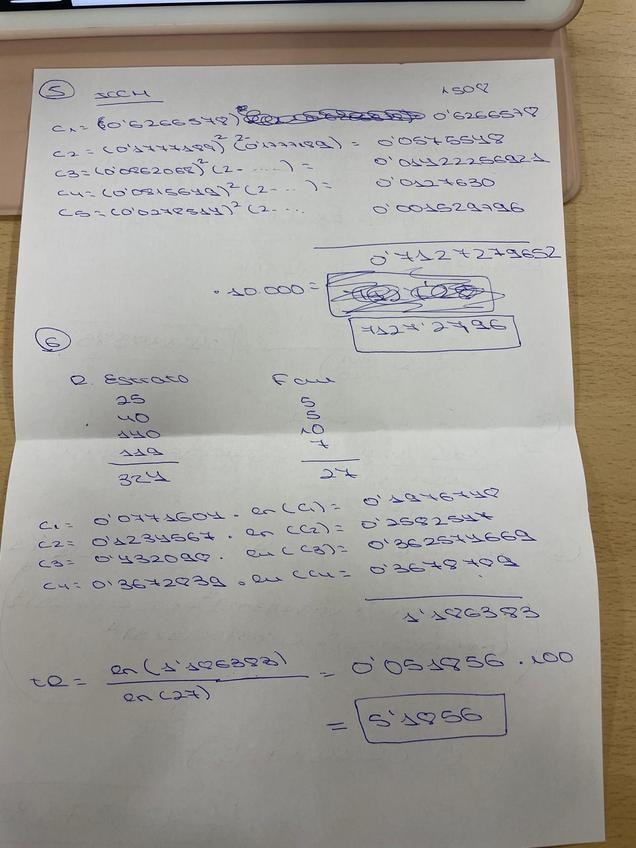 5 JCCH 1508
C1= (0'6266578) 0'6266578
C2= (0'1777189)² (2-0'1777189) = 0'0575548
C3= (0'0862068)² (2-.....) = 0'01422256921
C4= (0'0815649)² (2-...) = 0'0127630
C5= (0'0278514)² (2-... 0'001529796
0'7127279652
·10.000=
7127'2796
6
R. Estrato Fam
25 5
40 5
140 10
119 7
324 27
C1= 0'0771604 · en (C1)= 0'1976748
C2= 0'1234567 · en (C2)= 0'2582517
C3= 0'432098 · en (C3)= 0'362574669
C4= 0'3672839 · en (C4= 0'3678709
1'186383
en (1'186383)
= 0'051856 ·100
en (27)
= 5'1856